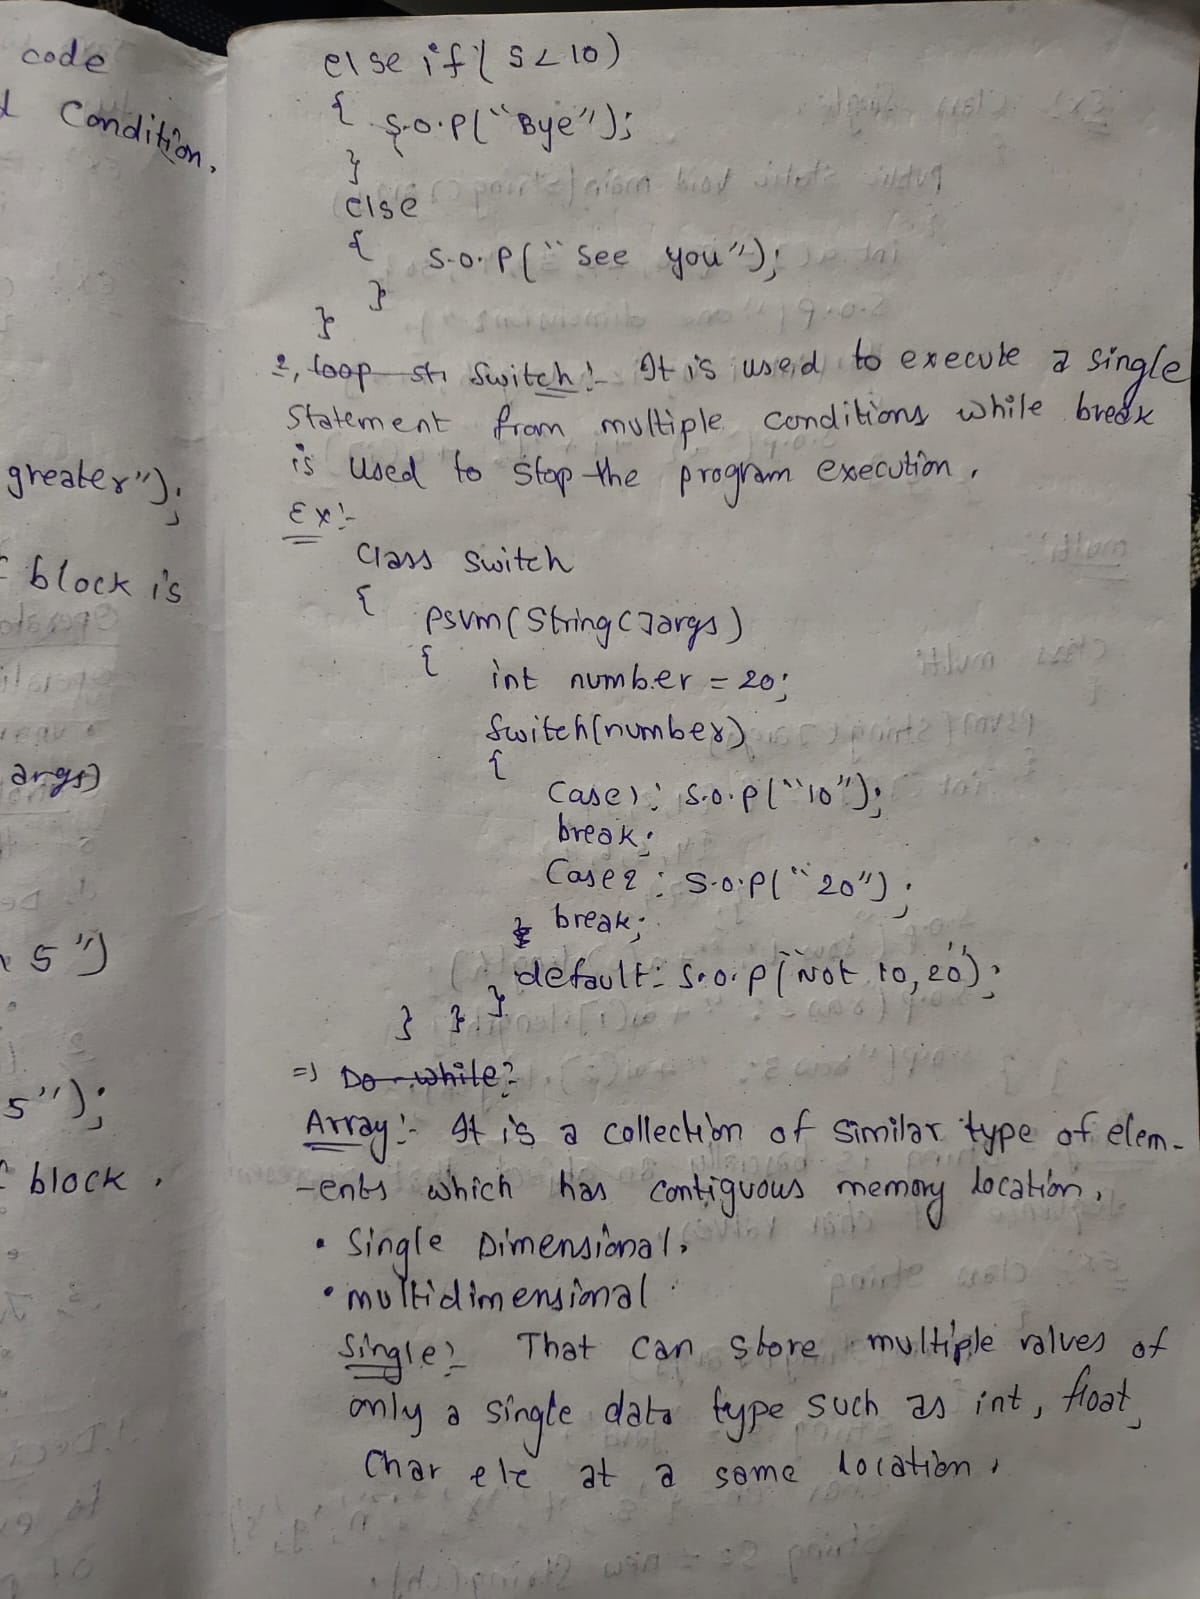 code
Condition.
greater");
block is
args)
5")
5");
block.
else if( 5 < 10)
{ S.o.p("Bye");
}
else
{ S.o.p("See you");
}
}
2, loop st Switch:- It is used to execute a single
Statement from multiple conditions while break
is used to stop the program execution.
Ex:-
Class Switch
{
psvm(String[]args)
{ int number = 20;
Switch(number)
{
Case1: S.o.p("10");
break;
Case2: S.o.p("20");
break;
default: S.o.p("Not 10,20");
} } }
=> Do-while:
Array:- It is a collection of similar type of elem-
-ents which has contiguous memory location.
• Single Dimensional.
• multidimensional
Single:- That can store multiple values of
only a single data type such as int, float,
Char etc at a same location.